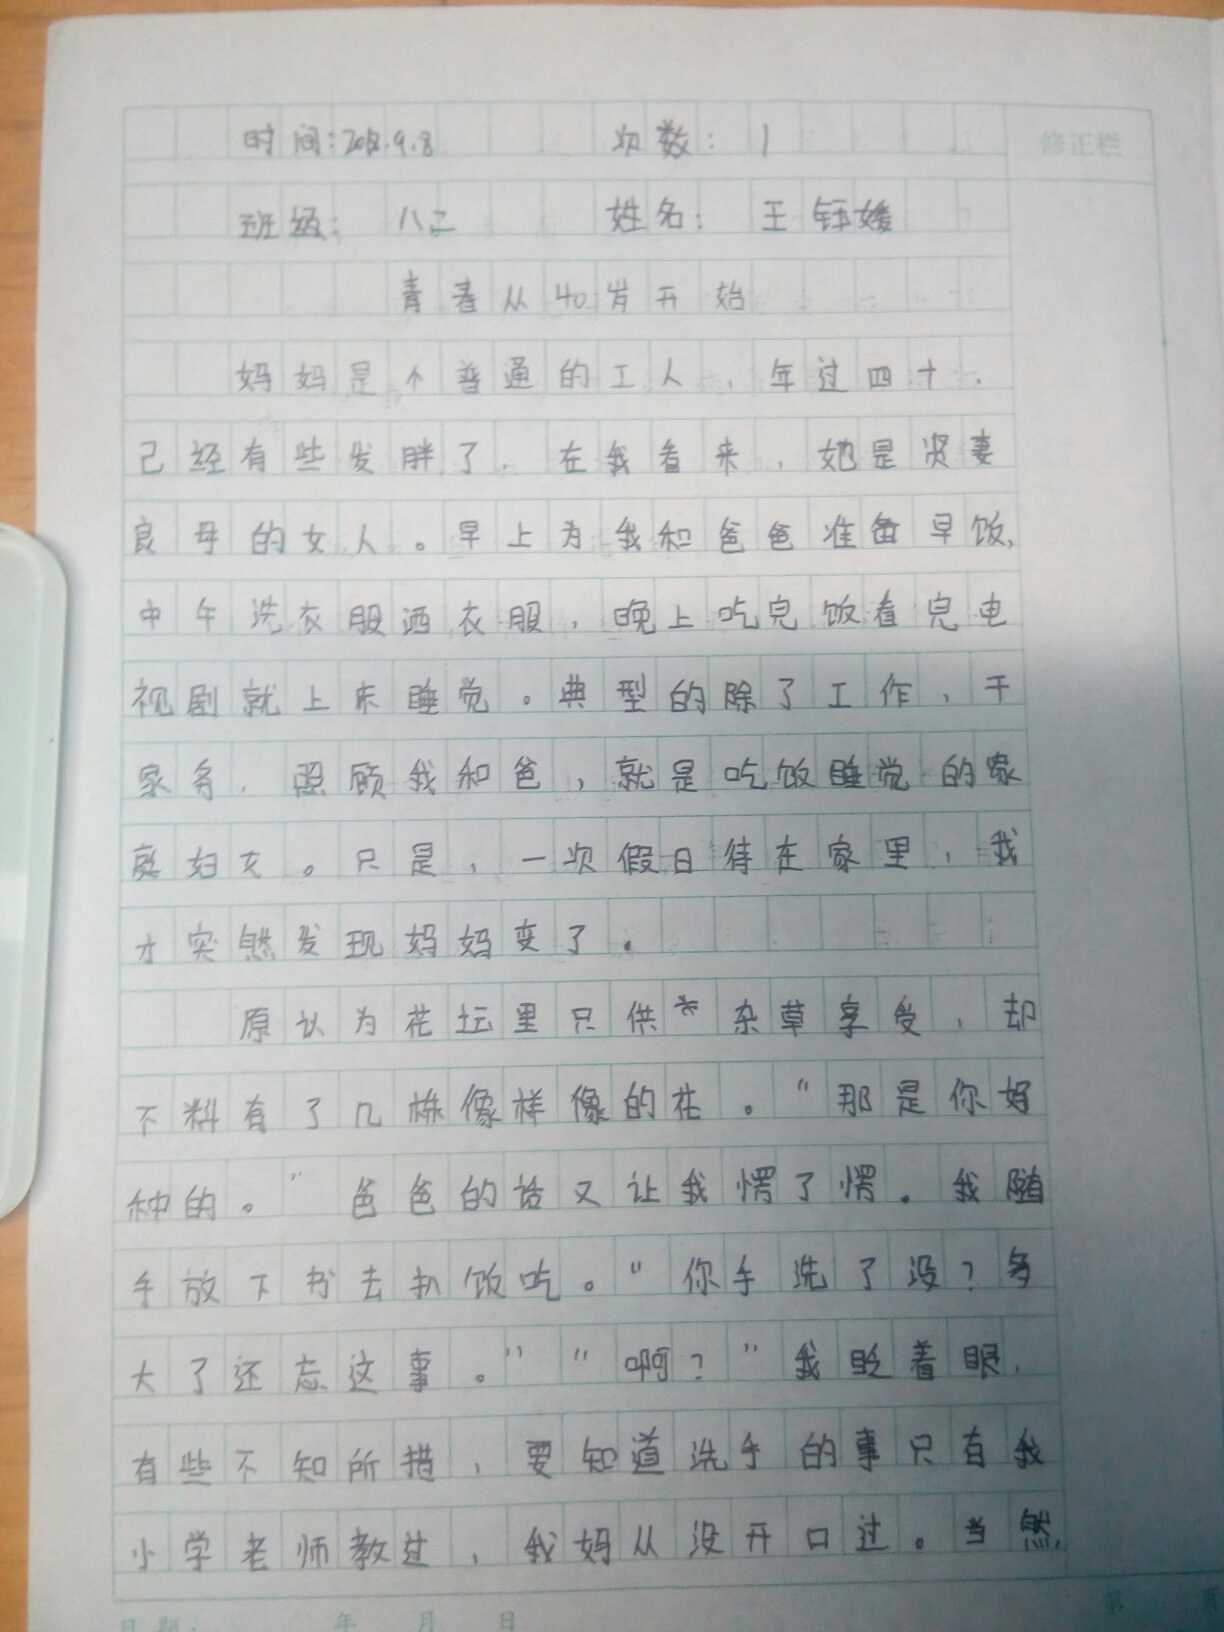 时间:2018.9.8 次数: 1
修正栏
班级: 八二 姓名: 王钰媛
青春从40岁开始
妈妈是个普通的工人,年过四十,
己经有些发胖了,在我看来,她是贤妻
良母的女人。早上为我和爸爸准备早饭,
中午洗衣服洒衣服,晚上吃完饭看完电
视剧就上床睡觉。典型的除了工作,干
家务,照顾我和爸,就是吃饭睡觉的家
庭妇女。只是,一次假日待在家里,我
才突然发现妈妈变了。
原认为花坛里只供杂草享受,却
不料有了几株像样像的花。“那是你妈
种的。”爸爸的话又让我愣了愣。我随
手放下书去扒饭吃。“你手洗了没?多
大了还忘这事。”“啊?”我眨着眼,
有些不知所措,要知道洗手的事只有我
小学老师教过,我妈从没开口过。当然,
日期: 年 月 日
第 页